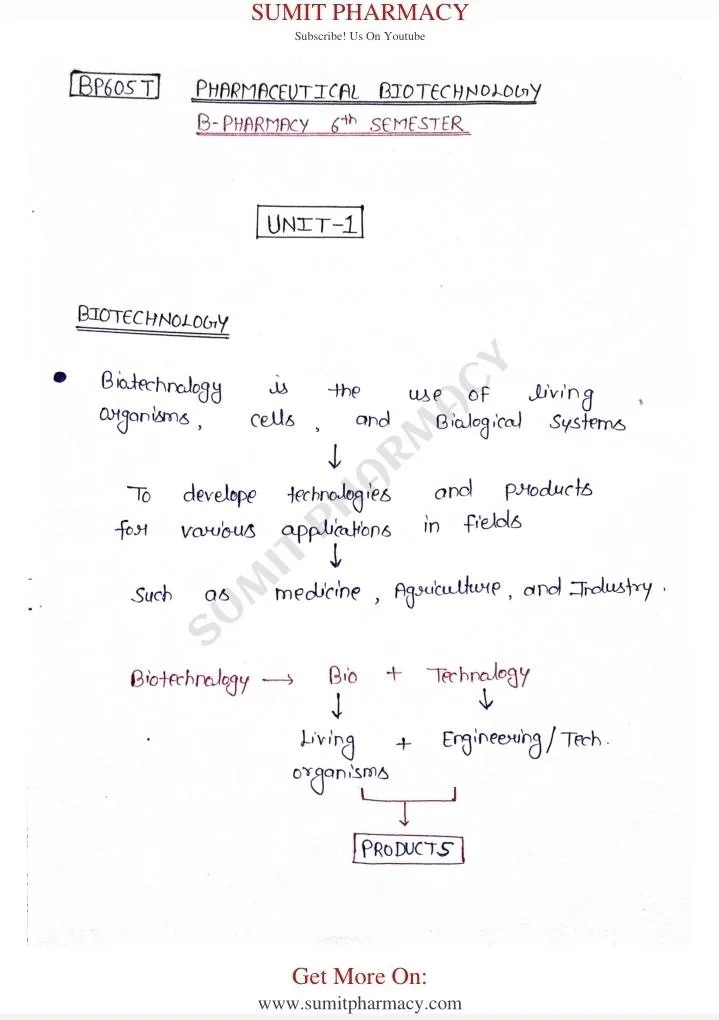 SUMIT PHARMACY
Subscribe! Us On Youtube
BP605T PHARMACEUTICAL BIOTECHNOLOGY
B-PHARMACY 6th SEMESTER
UNIT-1
BIOTECHNOLOGY
• Biotechnology is the use of living
organisms, cells, and Biological Systems
↓
To develope technologies and products
for various applications in fields
↓
Such as medicine, Agriculture, and Industry.
Biotechnology → Bio + Technology
↓ ↓
Living + Engineering/Tech.
organisms
↓
PRODUCTS
SUMIT PHARMACY
Get More On:
www.sumitpharmacy.com